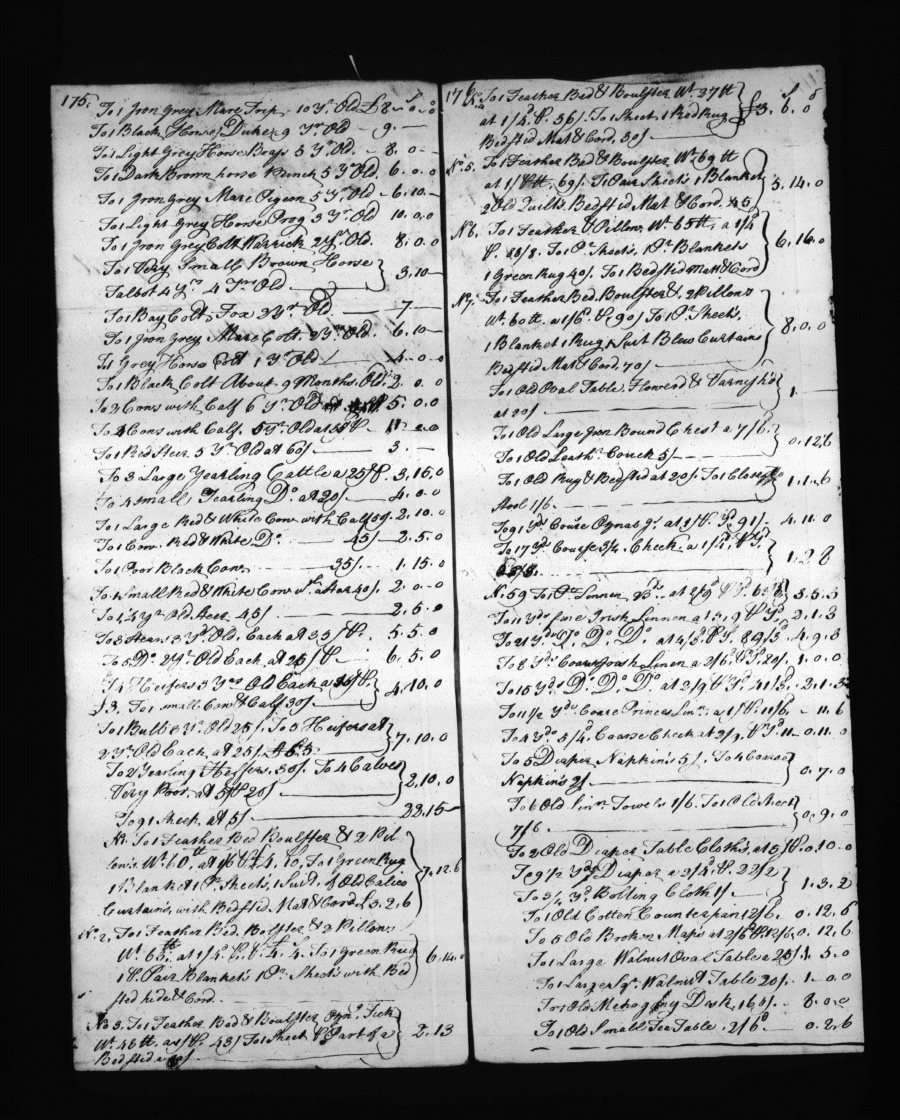 175.
To 1 Iron Grey Mare Trip 10 Yr. Old £8 " 0 " 0
To 1 Black Horse Duke 9 Yr. Old - 9. —
To 1 Light Grey Horse 5 Yr. Old. - 8. 0 -
To 1 Dark Brown horse Punch 5 Yr. Old. 6. 0. 0
To 1 Iron Grey Mare Pigeon 5 Yr. Old - 6. 10. —
To 1 Light Grey Horse Prog 3 Yr. Old 10. 0. 0
To 1 Iron Grey Colt Warrick 2 Yr. Old. 8. 0. 0
To 1 Very Small Brown Horse
Talbot 4 Yr. Old — } 3. 10 —
To 1 Bay Colt Fox 2 Yr. Old — 7 —
To 1 Iron Grey Mare Colt. 2 Yr. Old. 6. 10 —
To 1 Grey Horse Colt 1 Yr. Old — 4. 0. 0
To 1 Black Colt About 9 Months Old. 2. 0. 0
To 2 Cows with Calf 6 Yr. Old 5. 0. 0
To 4 Cows with Calf. 5 Yr. Old at
To 1 Red Steer 5 Yr. Old at 60/ — 3. —
To 3 Large Yearling Cattle a 25/ P. 3. 15. 0
To 4 small Yearling Do. at 20/ — 4. 0. 0
To 1 Large Red & White Cow with Calf 50/. 2. 10. 0
To 1 Cow. Red & White Do. — 45/ — 2. 5. 0
To 1 Poor Black Cow — 35/. — 1. 15. 0
To 1 Small Red & White Cow at 40/. 2. 0. 0
To 1, 4 Yr. Old Steer 45/ — 2. 5. 0
To 3 Steers 3 Yr. Old, Each at 35/ P. 5. 5. 0
To 5 Do. 2 Yr. Old Each at 25/ P. — 6. 5. 0
To 4 Heifers 3 Yrs. Old Each a
To 1 small Cow & Calf 30/ — } 4. 10. 0
To 1 Bull 3 Yr. Old 25/. To 5 Heifers at
2 Yr. Old Each at 25/. £6.5 — } 7. 10. 0
To 2 Yearling Heiffers, 30/. To 4 Calves
Very Poor, at 5/P 20/ — } 2. 10. 0
To 91 Sheep, at 5/ — 22. 15 —
No. 1. To 1 Feather Bed Boulster & 2 Pil
lows Wt. 60, at 1/6 P. £4. 10, To 1 Green Rug
1 Blanket 1 Pr. Sheets, 1 Suit of Old Calico
Curtains with Bedsted, Mat & Cord £3. 2. 6 } 7. 12. 6
No. 2, To 1 Feather Bed, Bolster & 2 Pillows
Wt. 65 tt. at 1/4. P. £4. 4. To 1 Green Rug
1 Pair Blankets 1 Pr. Sheets with Bed
sted hide & Cord. — } 6. 14. 0
No. 3. To 1 Feather Bed & Boulster Tick
Wt. 48 tt. a 1/ P. 48/ To 1 Sheet & Part of a
Bedsted — } 2. 13
176.
To 1 Feather Bed & Boulster Wt. 37 tt
at 1/4. P. 56/. To 1 Sheet, 1 Red Rug
Bedsted Mat & Cord, 30/ — } £3. 6. 0
No. 5. To 1 Feather Bed & Boulster Wt. 69 tt
at 1/ P tt. 69/. To 1 Pair Sheets 1 Blanket
2 Old Quilts Bedsted Mat & Cord. 45/ } 5. 14. 0
No. 6. To 1 Feather & Pillows Wt. 65 tt. a 1/4
P. To 1 Pr. Sheets, 1 Pr. Blankets
1 Green Rug 40/. To 1 Bedsted Matt & Cord } 6. 16. 0
No. 7. To 1 Feather Bed, Boulster & 2 Pillows
Wt. 60 tt. a 1/6. P. 90/ To 1 Pr. Sheets,
1 Blanket 1 Rug 1 Suit Blew Curtains
Bedsted Mat & Cord. 70/ — } 8. 0. 0
To 1 Old Oval Table. Flowerd & Varneshd
at 20/ — } 1 —
To 1 Old Large Iron Bound Chest a 7/6.
To 1 Old Leathr. Couch 5/ — } 0. 12. 6
To 1 Old Rug & Bedsted at 20/. To 1 Close
Stool 1/6. — } 1. 1. 6
To 91 Yd. Course Ozna at 1/ P. Yd. 91/- 4. 11. 0
To 17 Yd. Course 3/4 Check, a 1/4, P. Yd.
— } 1. 2 8
No. 59 To 1 Ps. Linnen at 2/9 P Yd. 3. 5. 3
To 11 Yds. fine Irish Linnen a P. Yd. 2. 1. 3
To 21 Yds. Do. Do. Do. at 4/3 P Yd. 89/3. 4. 9. 3
To 8 Yds. Coarse Irish Linen a 2/6 P. Yd. 20/. 1. 0. 0
To 15 Yd. Do. Do. Do. at 2/9 P Yd. 41/3. 2. 1. 3
To 11 1/2 Yds. Coarse Princes Linn. a 1/ P. 11/6. - 11. 6
To 4 Yd. 5/4. Coarse Check at 2/9, P. Yd. 11 — 0. 11. 0
To 5 Diaper Napkins 5/. To 4 Coarse
Napkins 2/ — } 0. 7. 0
To 6 Old Linn. Towels 1/6. To 1 Old Sheet
7/6 — } 0. 9. 0
To 2 Old Diaper Table Cloths, at 5/ P. 0. 10. 0
To 9 1/2 Yds. Diaper a 2/4 P. 22/2
To 3/4 Yd. Bolting Cloth 1/ — } 1. 3. 2
To 1 Old Cotton Counterpan 12/6. 0. 12. 6
To 5 Old Broken Maps at 2/6 P. 12/6. 0. 12. 6
To 1 Large Walnut Oval Table a 25/ 1. 5. 0
To 1 Larger Sqr. Walnut Table 20/. 1 — 0. 0
To 1 Old Mehogony Desk, 160/. — 8. 0. 0
To 1 Old Small Tea Table, 2/6 — 0. 2. 6